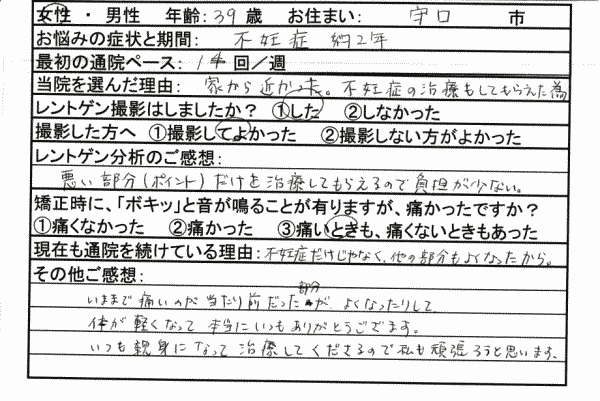 女性 ・ 男性 年齢: 39 歳 お住まい: 守口 市
お悩みの症状と期間: 不妊症 約2年
最初の通院ペース: 1 回／週
当院を選んだ理由: 家から近かった。不妊症の治療もしてもらえた為
レントゲン撮影はしましたか? ①した ②しなかった
撮影した方へ ①撮影してよかった ②撮影しない方がよかった
レントゲン分析のご感想:
悪い部分(ポイント)だけを治療してもらえるので負担が少ない。
矯正時に、「ボキッ」と音が鳴ることが有りますが、痛かったですか?
①痛くなかった ②痛かった ③痛いときも、痛くないときもあった
現在も通院を続けている理由: 不妊症だけじゃなく、他の部分もよくなったから。
その他ご感想:
いままで痛いのが当たり前だった部分が よくなったりして
体が軽くなって 本当にいつもありがとうございます。
いつも親身になって治療してくださるので私も頑張ろうと思います。